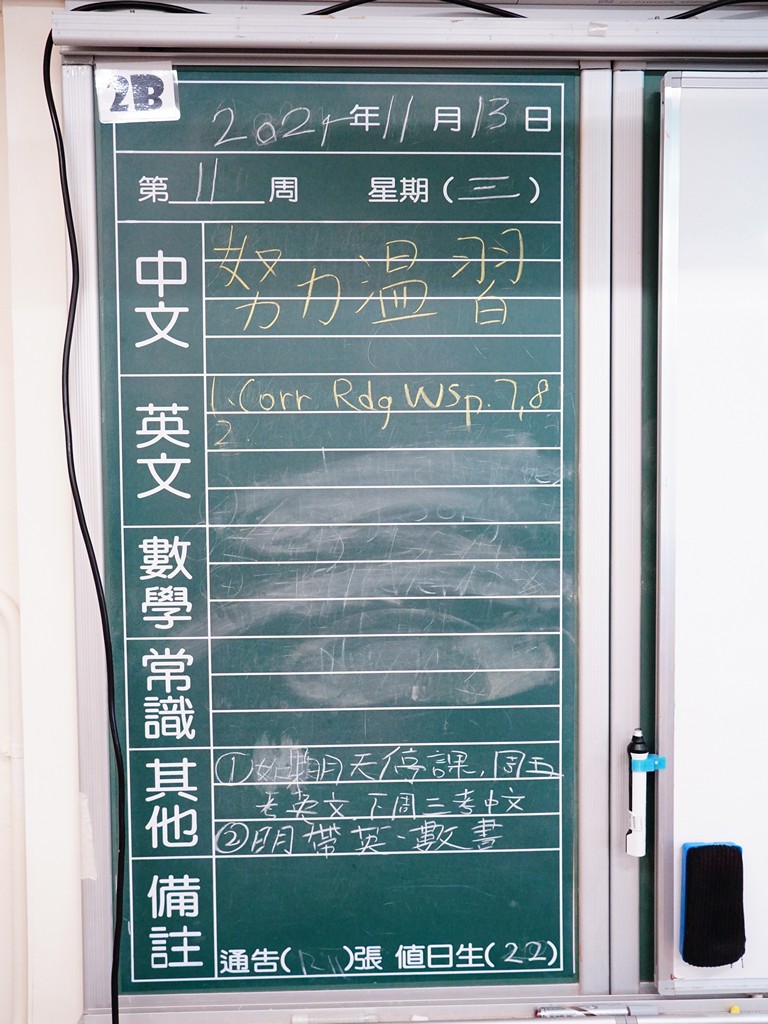 2B
2024年11月13日
第11周 星期(三)
中文
努力溫習
英文
1. Corr Rdg WS p.7,8
2.
數學
常識
其他
①如明天停課,周五
考英文 下周三考中文
②明帶英、數書
備註
通告( )張 值日生(22)